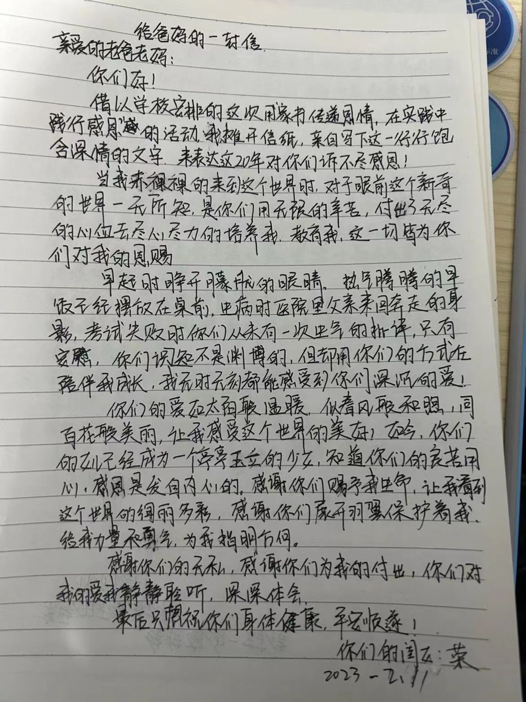 给爸妈的一封信
亲爱的老爸老妈:
你们好!
借以学校安排的这次用家书传递恩情,在实践中
践行感恩的活动,我摊开信纸,亲自写下这一行行饱
含深情的文字 来表达这20年对你们诉不尽感恩!
当我赤裸裸的来到这个世界时,对于眼前这个新奇
的世界一无所知,是你们用无限的辛苦,付出了无尽
的心血去尽心尽力的培养我,教育我,这一切皆为你
们对我的恩赐
早起时睁开朦胧的眼睛,热气腾腾的早
饭已经摆放在桌前,生病时医院里父亲来回奔走的身
影,考试失败时你们从未有一次生气的批评,只有
安慰,你们词短不是渊博的,但却用你们的方式在
陪伴我成长,我无时无刻都能感受到你们深沉的爱!
你们的爱如太阳般温暖,似春风般和煦,同
百花般美丽,让我感受这个世界的美好;如今,你们
的女儿已经成为一个亭亭玉立的少女,知道你们的良苦用
心,感恩是发自内心的,感谢你们赐予我生命,让我看到
这个世界的绚丽多彩,感谢你们展开羽翼保护着我,
给我力量和勇气,为我指明方向。
感谢你们的无私,感谢你们为我的付出,你们对
我的爱我静静聆听,深深体会
最后只想祝你们身体健康,平安顺遂!
你们的闺女:荣
2023-2.11